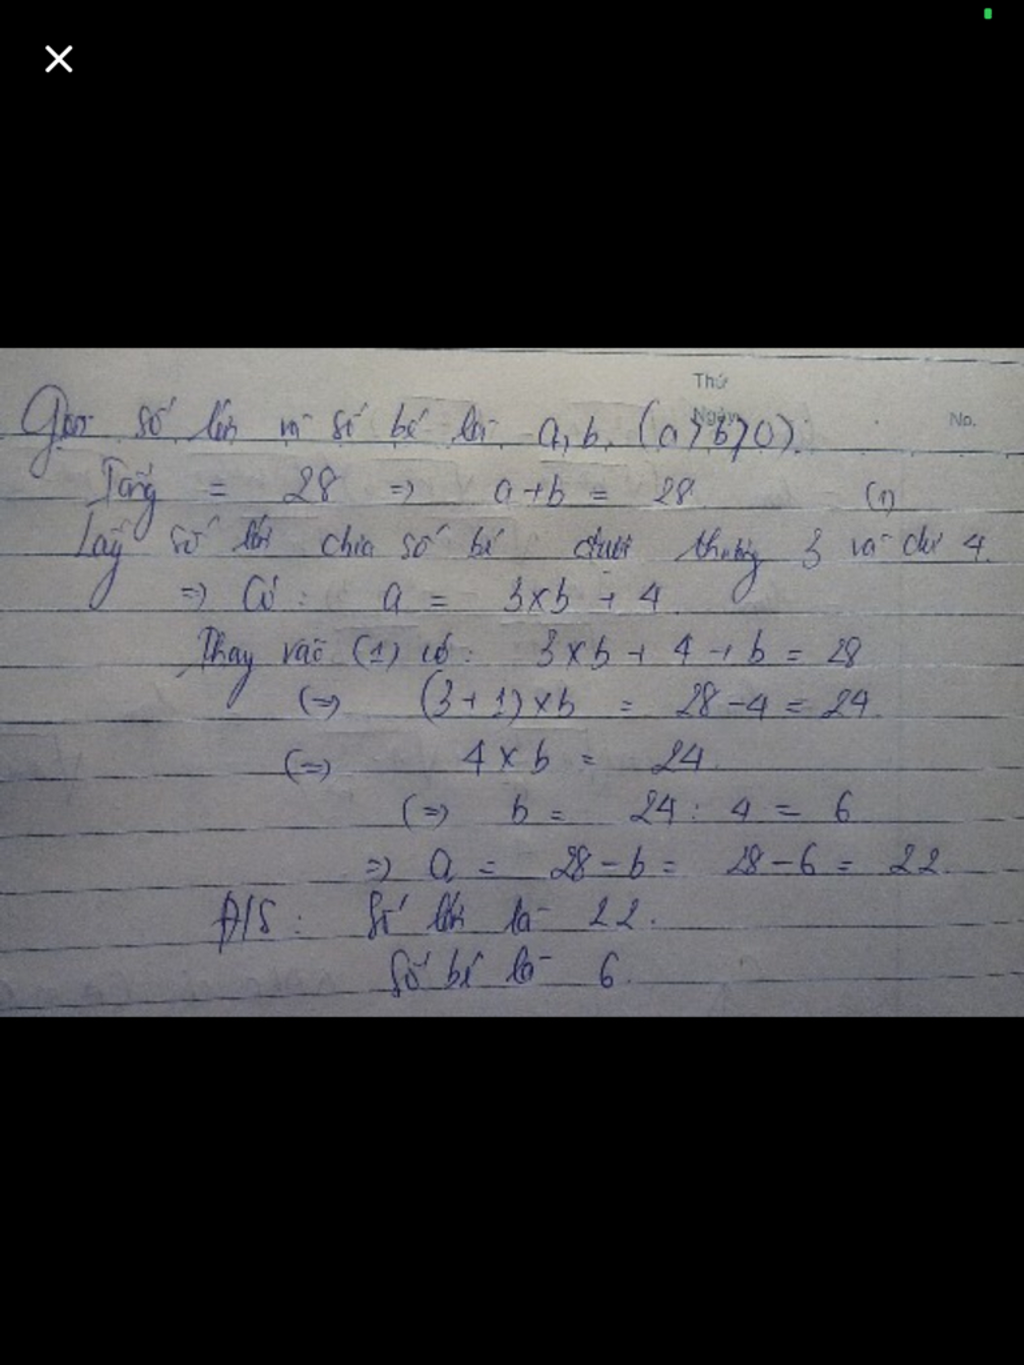 Thứ
Ngày
No.
Gọi số lớn và số bé là a, b. (a > b > 0).
Tổng = 28 => a + b = 28 (1)
Lấy số lớn chia số bé được thương 3 và dư 4.
=> Có: a = 3 x b + 4
Thay vào (1) có: 3 x b + 4 + b = 28
(=>) (3 + 1) x b = 28 - 4 = 24
(=>) 4 x b = 24
(=>) b = 24 : 4 = 6
=> a = 28 - b = 28 - 6 = 22
Đ/S: Số lớn là 22.
Số bé là 6.